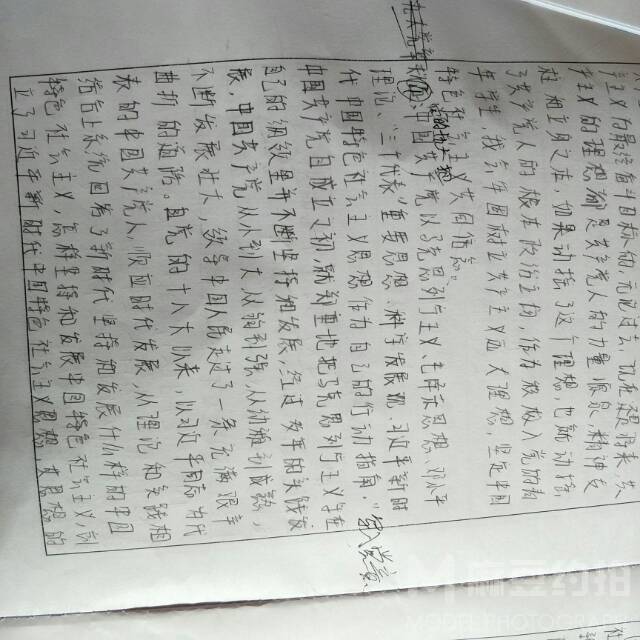 产主义的理想都是共产党人的力量源泉、精神支
柱和立身之本,如果动摇了这个理想,也就动摇
了共产党人的根本政治立场,作为入党的
年学生,我会牢固树立共产主义远大理想,坚定中国
特色社会主义共同信念。
中国共产党以马克思列宁主义、毛泽东思想、邓小平
理论、“三个代表”重要思想、科学发展观、习近平新时
代中国特色社会主义思想作为自己的行动指南。
中国共产党自成立之初,就郑重地把马克思列宁主义写在
自己的旗帜里并不断坚持和发展,经过多年的实践发
展,中国共产党从小到大、从弱到强、从幼稚到成熟,
不断发展壮大,领导中国人民走过了一条充满艰辛
曲折的道路。自党的十八大以来,以习近平同志为代
表的中国共产党人,顺应时代发展,从理论和实践相
结合上系统回答了新时代坚持和发展什么样的中国
特色社会主义,怎样坚持和发展中国特色社会主义,创
立了习近平新时代中国特色社会主义思想,思想的
麻豆约拍